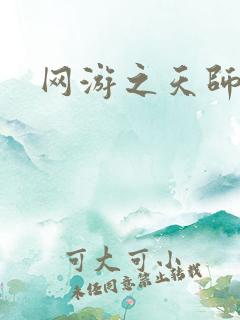 网游之天师
可大可小
未经同意禁止转载